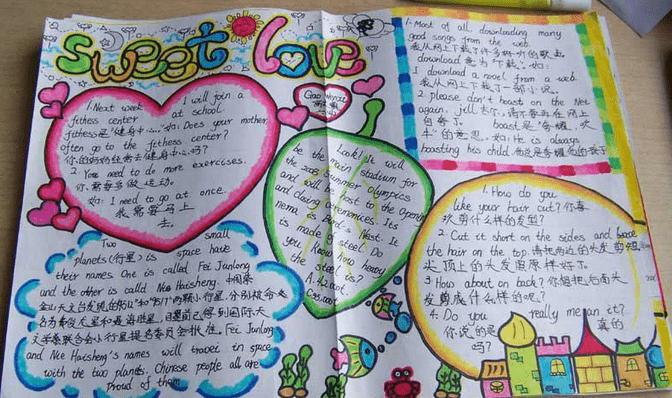 sweet love
1. Next week I will join a
fitness center at school
fitness是"健身中心.如: Does your mother
often go to the fitness center?
你的妈妈经常去健身中心吗?
2. You need to do more exercises.
你需要多做运动.
如: I need to go at once.
我需要马上
去.
Two small
planets (行星) in space have
their names One is called Fei Junlong
and the other is called Nie Haisheng.
两颗小行星,分别被命
名为费俊龙星和聂海胜星,
Fei Junlong
and Nie Haisheng's names will travel in space
with the two planets. Chinese people all are
proud of them
Look! It will
be the main stadium for
the 2008 Summer Olympics
and will be host to the Opening
and Closing ceremonies. Its
nema is Bird's Nest. It
is made of steel. Do
you know how heavy
the steel is?
A. 42.000.
1. Most of all downloading many
good songs from the web.
我从网上下载了许多好听的歌曲
download 意为"下载".如:
I download a novel from a web.
我从网上下载了一部小说.
2. please don't boast on the Net
again. jill 去了,请不要再在网上
自夸了. boast是"夸耀,吹
牛"的意思. 如: He is always
boasting his child. 他总是夸耀他的孩子
1. How do you
like your hair cut? 你喜
欢剪什么样的发型?
2. Cut it short on the sides and
the hair on the top. 请把两边的头发剪短,
头顶上的头发照原样好了.
3. How about on back? 你想把后面头
发剪成什么样的呢?
4. Do you really mean it?
你说的是真的
吗?